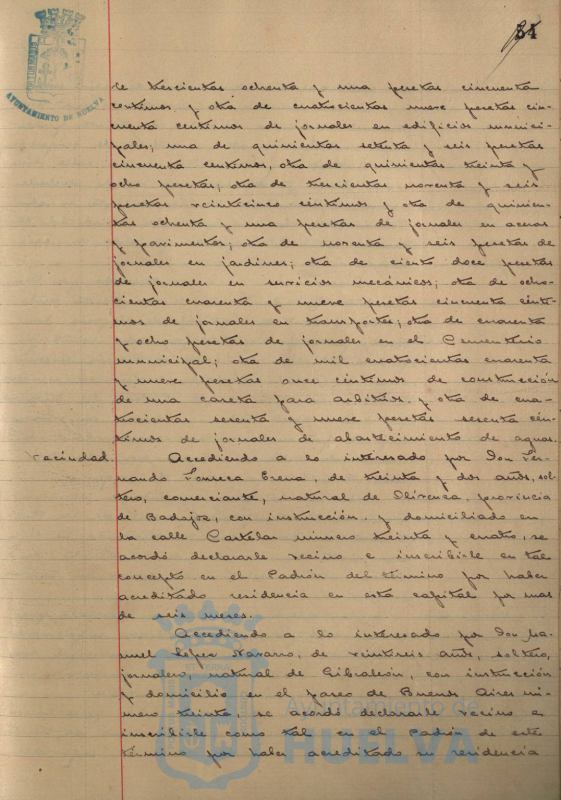 34
AYUNTAMIENTO DE HUELVA
de trescientas ochenta y una pesetas cincuenta
centimos y otra de cuatrocientas nueve pesetas cin-
cuenta centimos de jornales en edificios munici-
pales; una de quinientas setenta y seis pesetas
cincuenta centimos, otra de quinientas treinta y
ocho pesetas; otra de trescientas noventa y seis
pesetas veinticinco céntimos y otra de quinien-
tas ochenta y una pesetas de jornales en aceras
y pavimentos; otra de noventa y seis pesetas de
jornales en jardines; otra de ciento doce pesetas
de jornales en servicios mecánicos; otra de ocho-
cientas cuarenta y nueve pesetas cincuenta cénti-
mos de jornales en transportes; otra de cuarenta
y ocho pesetas de jornales en el Cementerio
municipal; otra de mil cuatrocientas cuarenta
y nueve pesetas once céntimos de construcción
de una caseta para arbitrios y otra de cua-
trocientas sesenta y nueve pesetas sesenta cén-
timos de jornales de abastecimiento de aguas.
Vecindad. Accediendo a lo interesado por Don Fer-
nando Fonseca, de treinta y dos años, sol-
tero, comerciante, natural de Olivenza, provincia
de Badajoz, con instrucción y domiciliado en
la calle Castelar número treinta y cuatro, se
acordó declararle vecino e inscribirle en tal
concepto en el Padrón del término por haber
acreditado residencia en esta capital por mas
de seis meses.
Accediendo a lo interesado por Don Ma-
nuel López Navarro, de veintiseis años, soltero,
jornalero, natural de Gibraleón, con instrucción
y domicilio en el paseo de Buenos Aires nú-
mero treinta, se acordó declararle vecino e
inscribirle como tal en el Padrón de este
término por haber acreditado su residencia
Ayuntamiento de
HUELVA